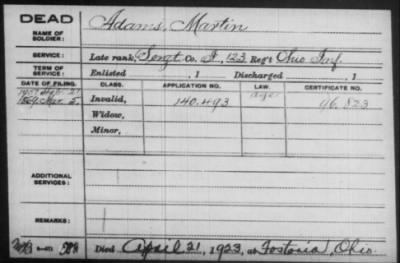 DEAD
NAME OF SOLDIER: Adams, Martin
SERVICE: Late rank, Sergt Co. , 123 Reg't Ohio Inf.
TERM OF SERVICE: Enlisted , 1 Discharged , 1
DATE OF FILING. CLASS. APPLICATION NO. LAW. CERTIFICATE NO.
Invalid, 140.493 96.823
Widow,
Minor,
ADDITIONAL SERVICES:
REMARKS:
Died April 21, 1923, at Fostoria, Ohio.